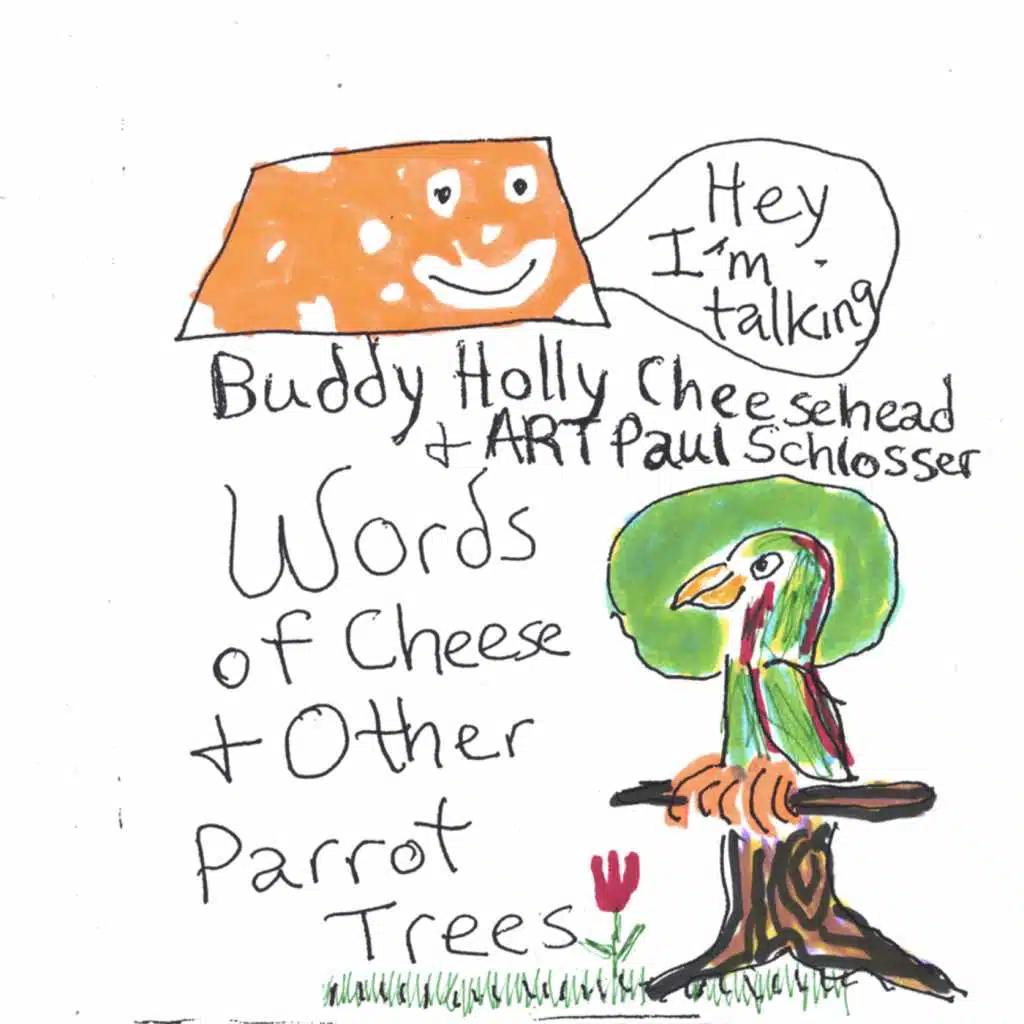 Hey
I'm
talking
Buddy Holly Cheesehead
+ ART Paul Schlosser
Words
of Cheese
+ Other
Parrot
Trees